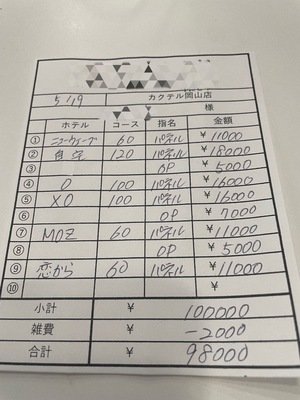 5/19 カクテル岡山店
様
ホテル コース 指名 金額
① ニューウェーブ 60 パネル ¥11000
② 自宅 120 パネル ¥18000
③ OP ¥5000
④ O 100 パネル ¥16000
⑤ XO 100 パネル ¥16000
⑥ OP ¥7000
⑦ MOZ 60 パネル ¥11000
⑧ OP ¥5000
⑨ 恋から 60 パネル ¥11000
⑩ ¥
小計 ¥ 100000
雑費 ¥ -2000
合計 ¥ 98000